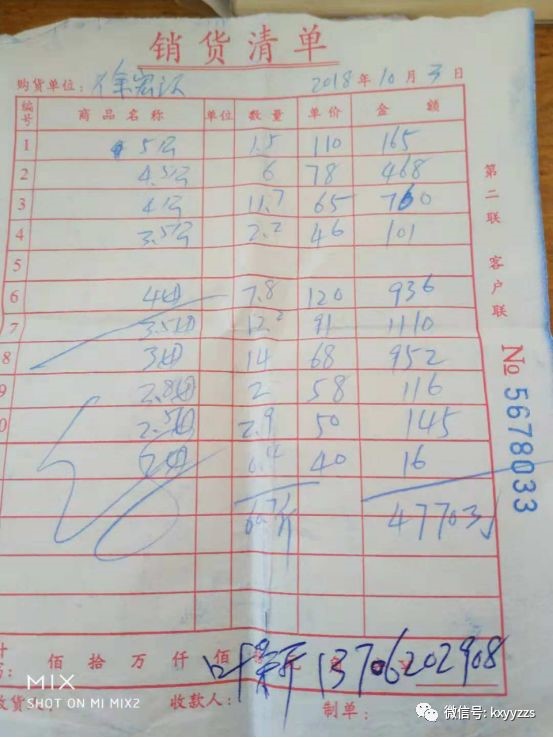 销货清单
购货单位： 2018年10月3日
编号 商品名称 单位 数量 单价 金额
1 5公 1.5 110 165
2 4.5公 6 78 468
3 4公 11.7 65 760
4 3.5公 2.2 46 101
5
6 4母 7.8 120 936
7 3.5母 12.2 91 1110
8 3母 14 68 952
9 2.8母 2 58 116
0 2.5母 2.9 50 145
2母 0.4 40 16
60.7斤 4770
第二联 客户联
No 5678033
佰拾万仟佰
13706202908
收款人： 制单：
MIX
SHOT ON MI MIX2
微信号: kxyyzzs